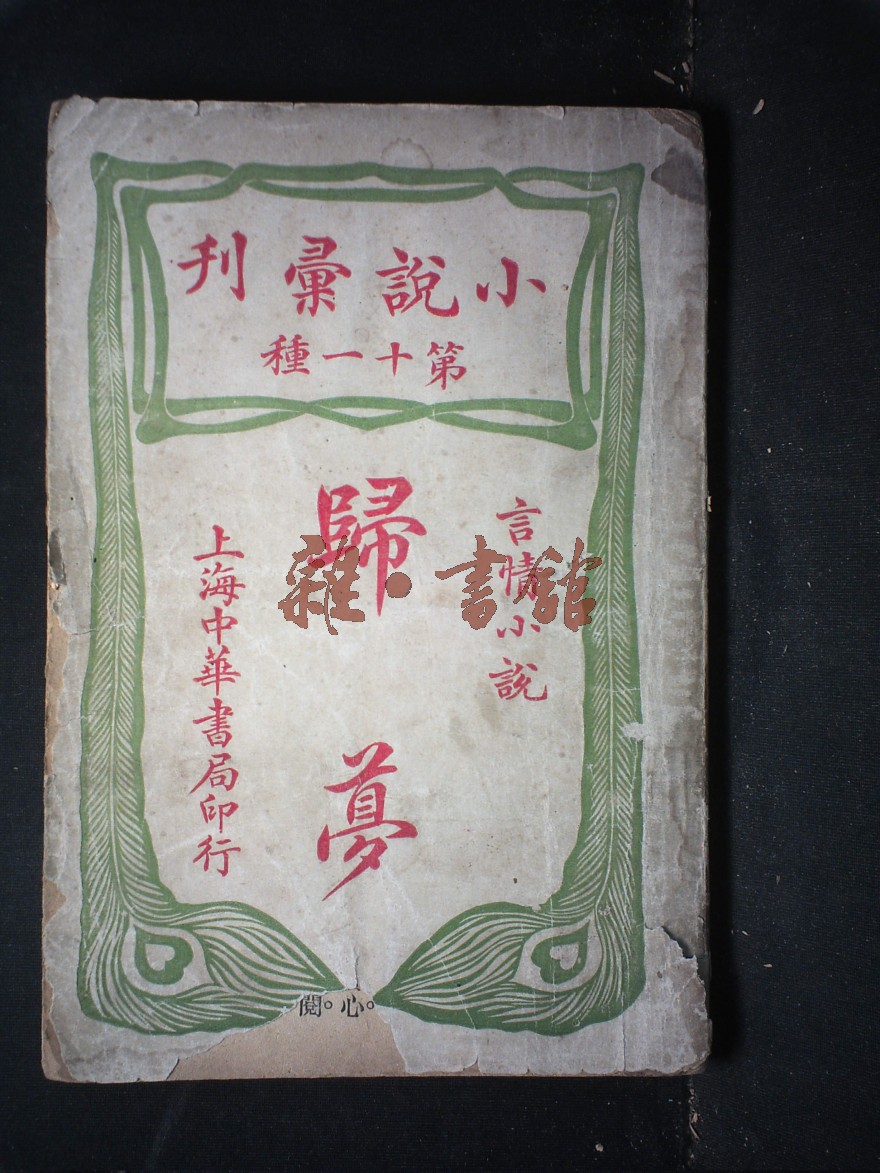 小說彙刊
第十一種
言情小說
歸夢
上海中華書局印行
心。閱
雜·書館